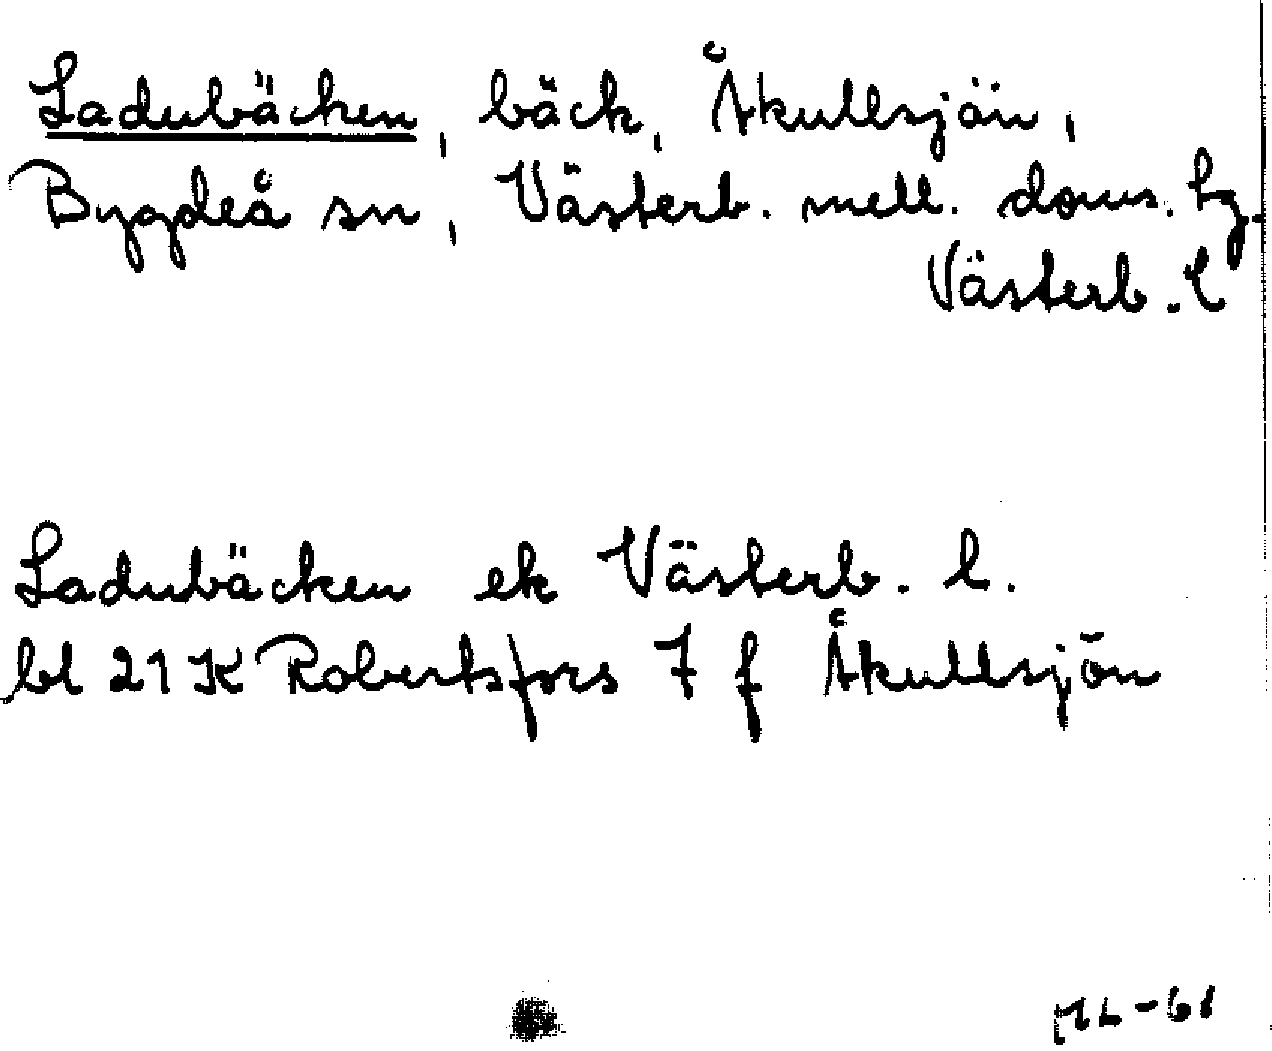 Ladubäcken, bäck, Åkullsjön,
Bygdeå sn, Västerb. mell. doms. tg.
Västerb. l
Ladubäcken ek Västerb. l.
bl 21 K Robertsfors 7 f Åkullsjön
ML-61